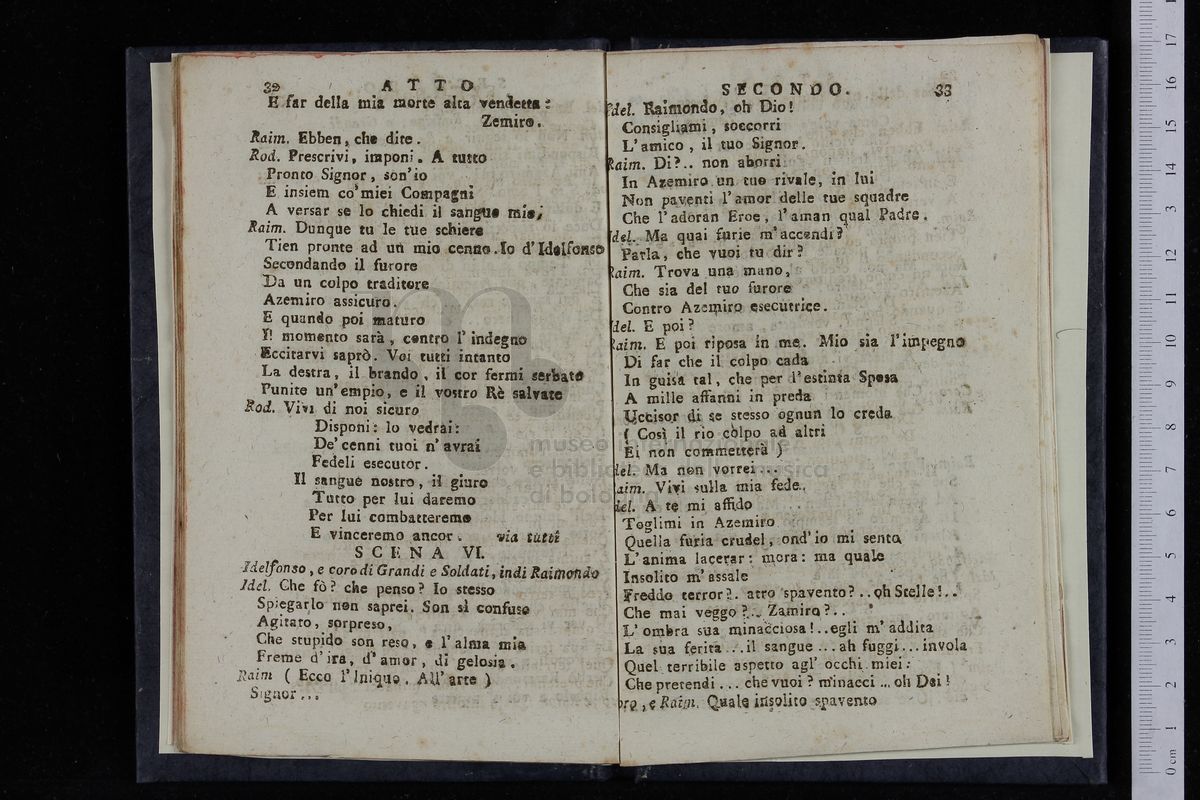 32 ATTO
E far della mia morte alta vendetta:
Zemiro.
Raim. Ebben, che dite.
Rod. Prescrivi, imponi. A tutto
Pronto Signor, son'io
E insiem co'miei Compagni
A versar se lo chiedi il sangue mio;
Raim. Dunque tu le tue schiere
Tien pronte ad un mio cenno. Io d'Idelfonso
Secondando il furore
Da un colpo traditore
Azemiro assicuro.
E quando poi maturo
Il momento sarà, contro l'indegno
Eccitarvi saprò. Voi tutti intanto
La destra, il brando, il cor fermi serbate
Punite un'empio, e il vostro Rè salvate
Rod. Vivi di noi sicuro
Disponi: lo vedrai:
De'cenni tuoi n'avrai
Fedeli esecutor.
Il sangue nostro, il giuro
Tutto per lui daremo
Per lui combatteremo
E vinceremo ancor. via tutti
SCENA VI.
Idelfonso, e coro di Grandi e Soldati, indi Raimondo
Idel. Che fò? che penso? Io stesso
Spiegarlo non saprei. Son sì confuso
Agitato, sorpreso,
Che stupido son reso, e l'alma mia
Freme d'ira, d'amor, di gelosia.
Raim ( Ecco l'Iniquo. All'arte )
Signor...
SECONDO. 33
Idel. Raimondo, oh Dio!
Consigliami, soccorri
L'amico, il tuo Signor.
Raim. Di?.. non aborri
In Azemiro un tuo rivale, in lui
Non paventi l'amor delle tue squadre
Che l'adoran Eroe, l'aman qual Padre.
del. Ma quai furie m'accendi?
Parla, che vuoi tu dir?
Raim. Trova una mano,
Che sia del tuo furore
Contro Azemiro esecutrice.
del. E poi?
aim. E poi riposa in me. Mio sia l'impegno
Di far che il colpo cada
In guisa tal, che per l'estinta Sposa
A mille affanni in preda
Uccisor di se stesso ognun lo creda
( Così il rio colpo ad altri
Ei non commetterà )
del. Ma non vorrei...
aim. Vivi sulla mia fede.
del. A te mi affido
Toglimi in Azemiro
Quella furia crudel, ond'io mi sento
L'anima lacerar: mora: ma quale
Insolito m'assale
Freddo terror?. atro spavento?..oh Stelle!..
Che mai veggo?.. Zamiro?..
L'ombra sua minacciosa!..egli m'addita
La sua ferita...il sangue...ah fuggi...invola
Quel terribile aspetto agl'occhi miei:
Che pretendi... che vuoi? minacci... oh Dei!
oro, e Raim. Quale insolito spavento
museo internazionale
e biblioteca della musica
di bologna
0 cm 1 2 3 4 5 6 7 8 9 10 11 12 13 14 15 16 17